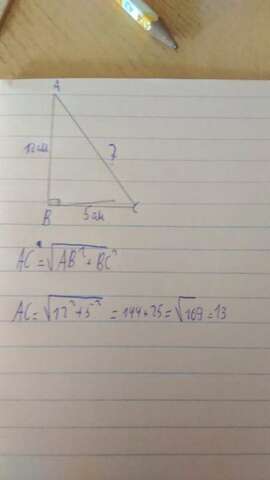 A
12см
?
B
5см
C
AC = √AB² + BC²
AC = √12² + 5² = 144 + 25 = √169 = 13